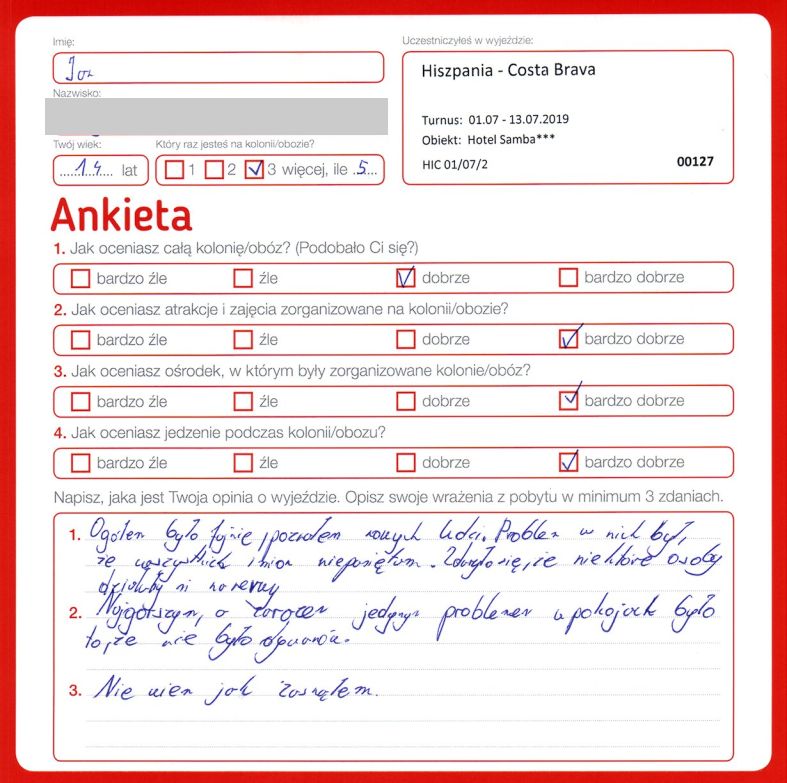 Imię:
Uczestniczyłeś w wyjeździe:
Hiszpania - Costa Brava
Nazwisko:
Turnus: 01.07 - 13.07.2019
Twój wiek:
Który raz jesteś na kolonii/obozie?
Obiekt: Hotel Samba***
14 lat
1 2 3 więcej, ile 5
HIC 01/07/2 00127
Ankieta
1. Jak oceniasz całą kolonię/obóz? (Podobało Ci się?)
bardzo źle źle dobrze bardzo dobrze
2. Jak oceniasz atrakcje i zajęcia zorganizowane na kolonii/obozie?
bardzo źle źle dobrze bardzo dobrze
3. Jak oceniasz ośrodek, w którym były zorganizowane kolonie/obóz?
bardzo źle źle dobrze bardzo dobrze
4. Jak oceniasz jedzenie podczas kolonii/obozu?
bardzo źle źle dobrze bardzo dobrze
Napisz, jaka jest Twoja opinia o wyjeździe. Opisz swoje wrażenia z pobytu w minimum 3 zdaniach.
1. Ogólem było fajnie, poznałem nowych ludzi. Problem w nich był,
że wszystkich imion niepamiętam. Zdarzyło się, że niektóre osoby
działały mi na nerwy
2. Najgorszym, a zarazem jedynym problemem w pokojach było
to, że nie było dywanów.
3. Nie wiem jak zasnąłem.